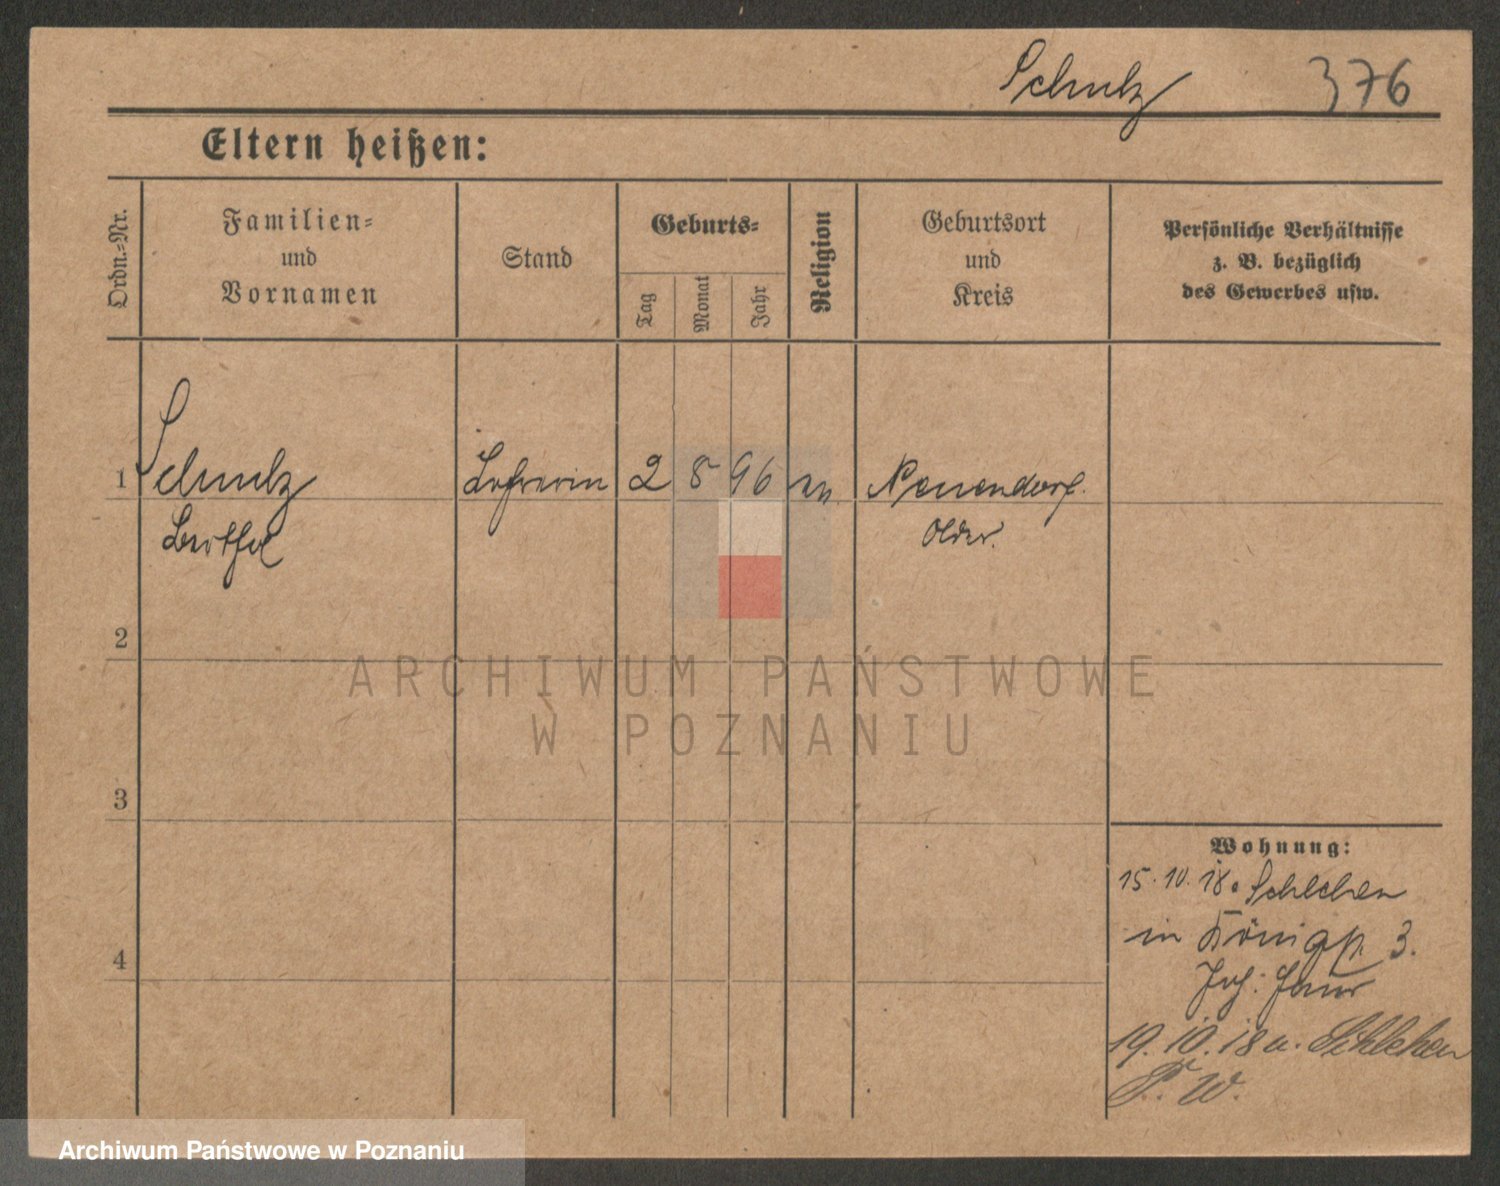 Schulz 376
Eltern heißen:
Ordn.=Nr.
Familien=
und
Vornamen
Stand
Geburts=
Tag
Monat
Jahr
Religion
Geburtsort
und
Kreis
Persönliche Verhältnisse
z. B. bezüglich
des Gewerbes usw.
1 Schulz Lehrerin 2 8 96 ev. Neuendorf.
Berthel
2
3
4
Wohnung:
15. 10. 18. Schlehen
in Königspl. 3.
19. 10. 18 n. Schlehen
P. W.
ARCHIWUM PAŃSTWOWE
W POZNANIU
Archiwum Państwowe w Poznaniu